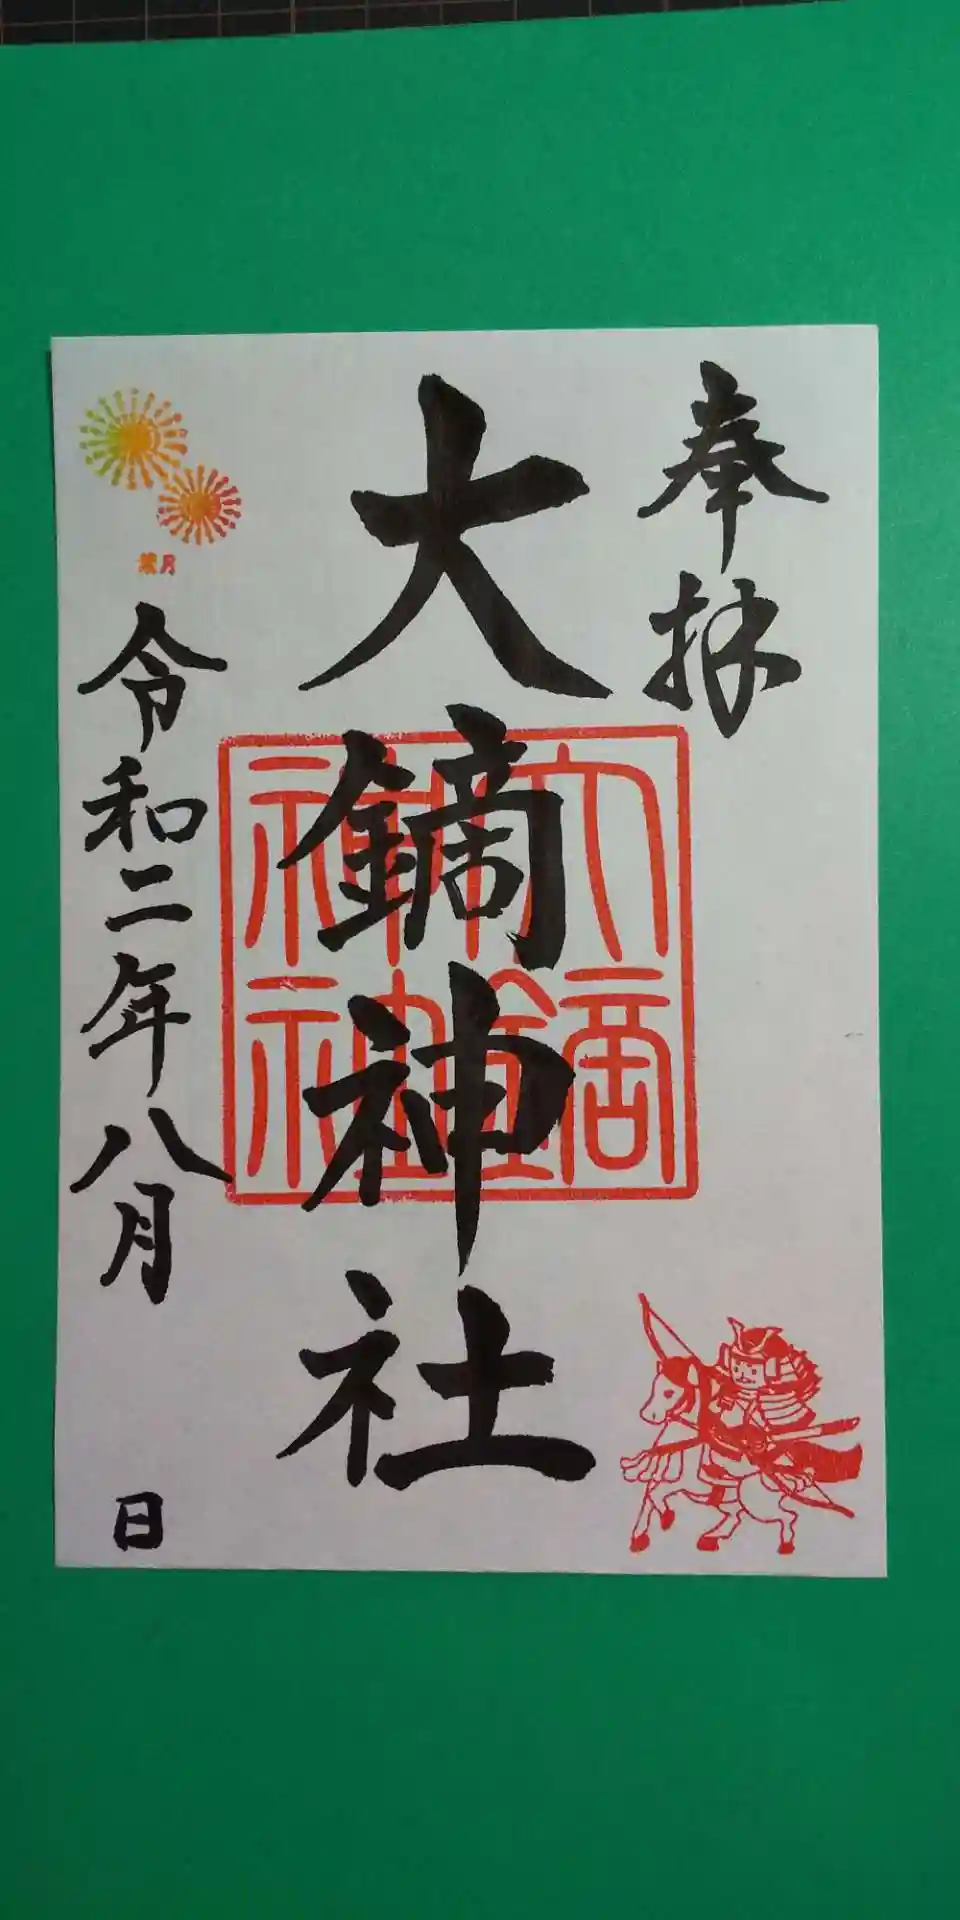 奉拝
大鏑神社
大鏑神社
葉月
令和二年八月 日